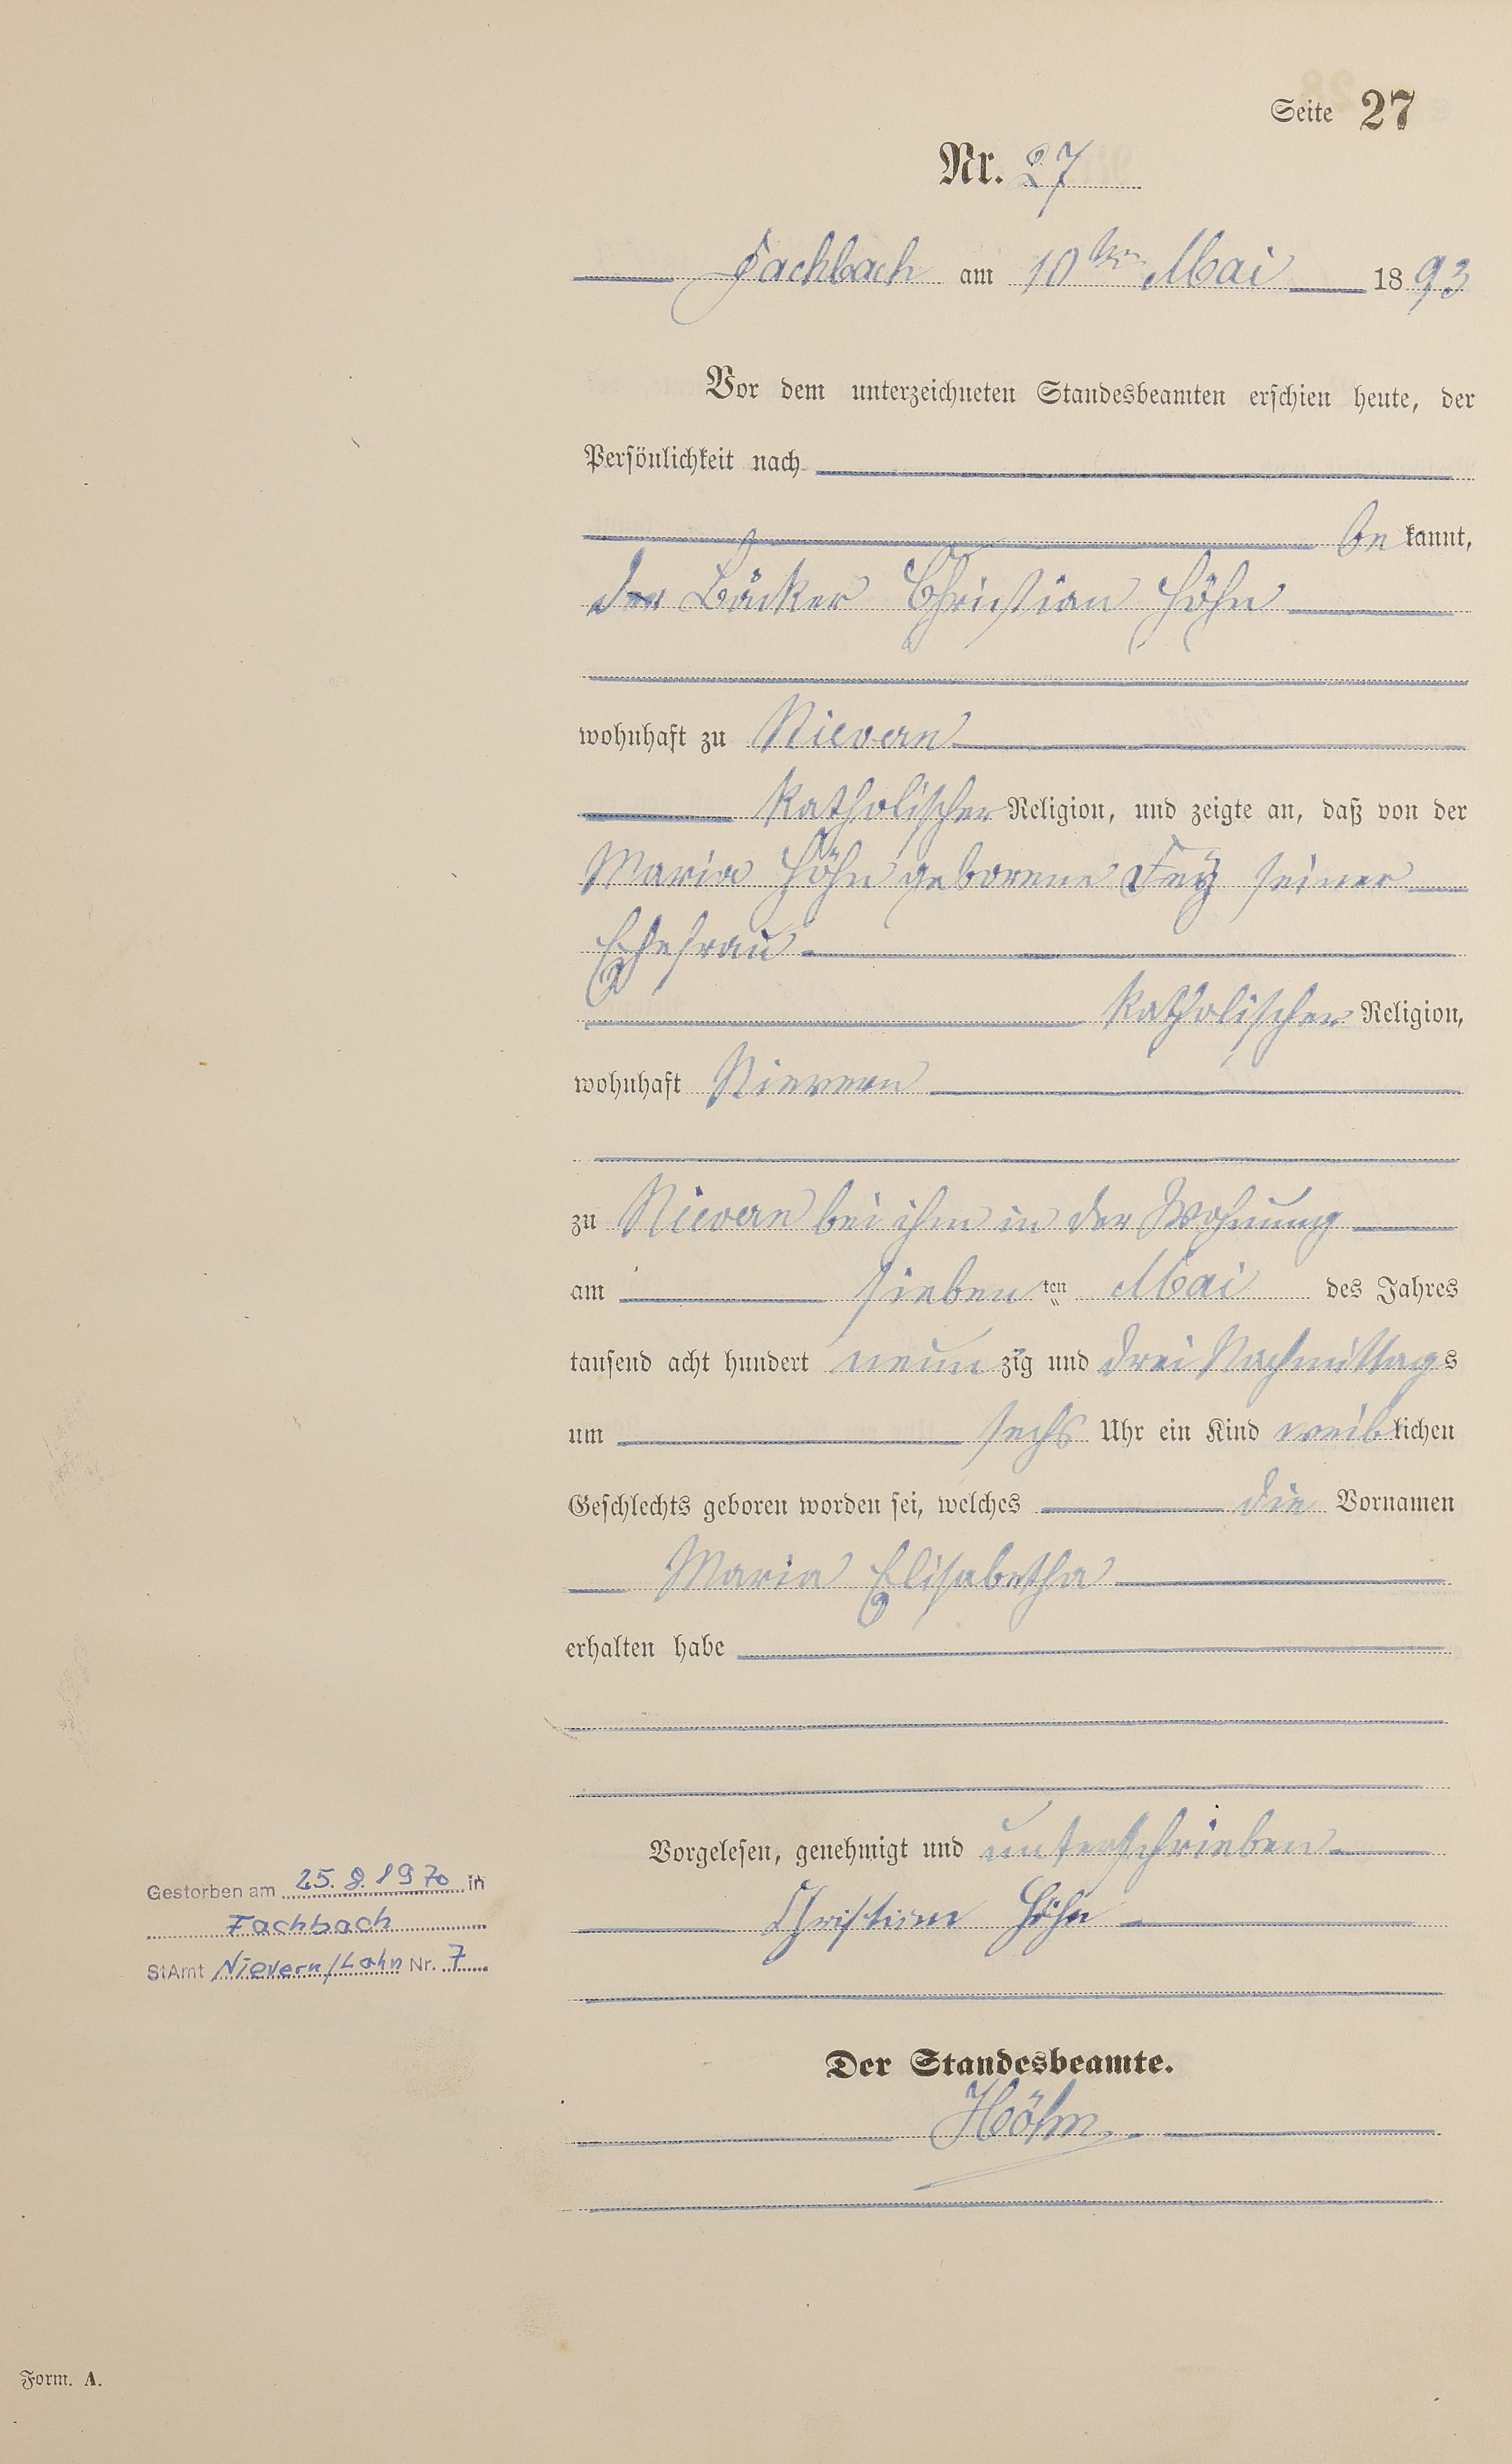 Seite 27
Nr. 27
Fachbach am 10ten Mai 1893
Vor dem unterzeichneten Standesbeamten erschien heute, der
Persönlichkeit nach
be kannt,
der Bäcker Christian Höhn
wohnhaft zu Nievern
katholischer Religion, und zeigte an, daß von der
Maria Höhn geborene Fey seiner
Ehefrau
katholischer Religion,
wohnhaft Nievern
zu Nievern bei ihm in der Wohnung
am sieben ten Mai des Jahres
tausend acht hundert neun zig und drei Nachmittags
um sechs Uhr ein Kind weiblichen
Geschlechts geboren worden sei, welches die Vornamen
Maria Elisabetha
erhalten habe
Vorgelesen, genehmigt und unterschrieben
Christian Höhn
Der Standesbeamte.
Höhn
Gestorben am 25.8.1970 in
Fachbach
StAmt Nievern/Lahn Nr. 7
Form. A.